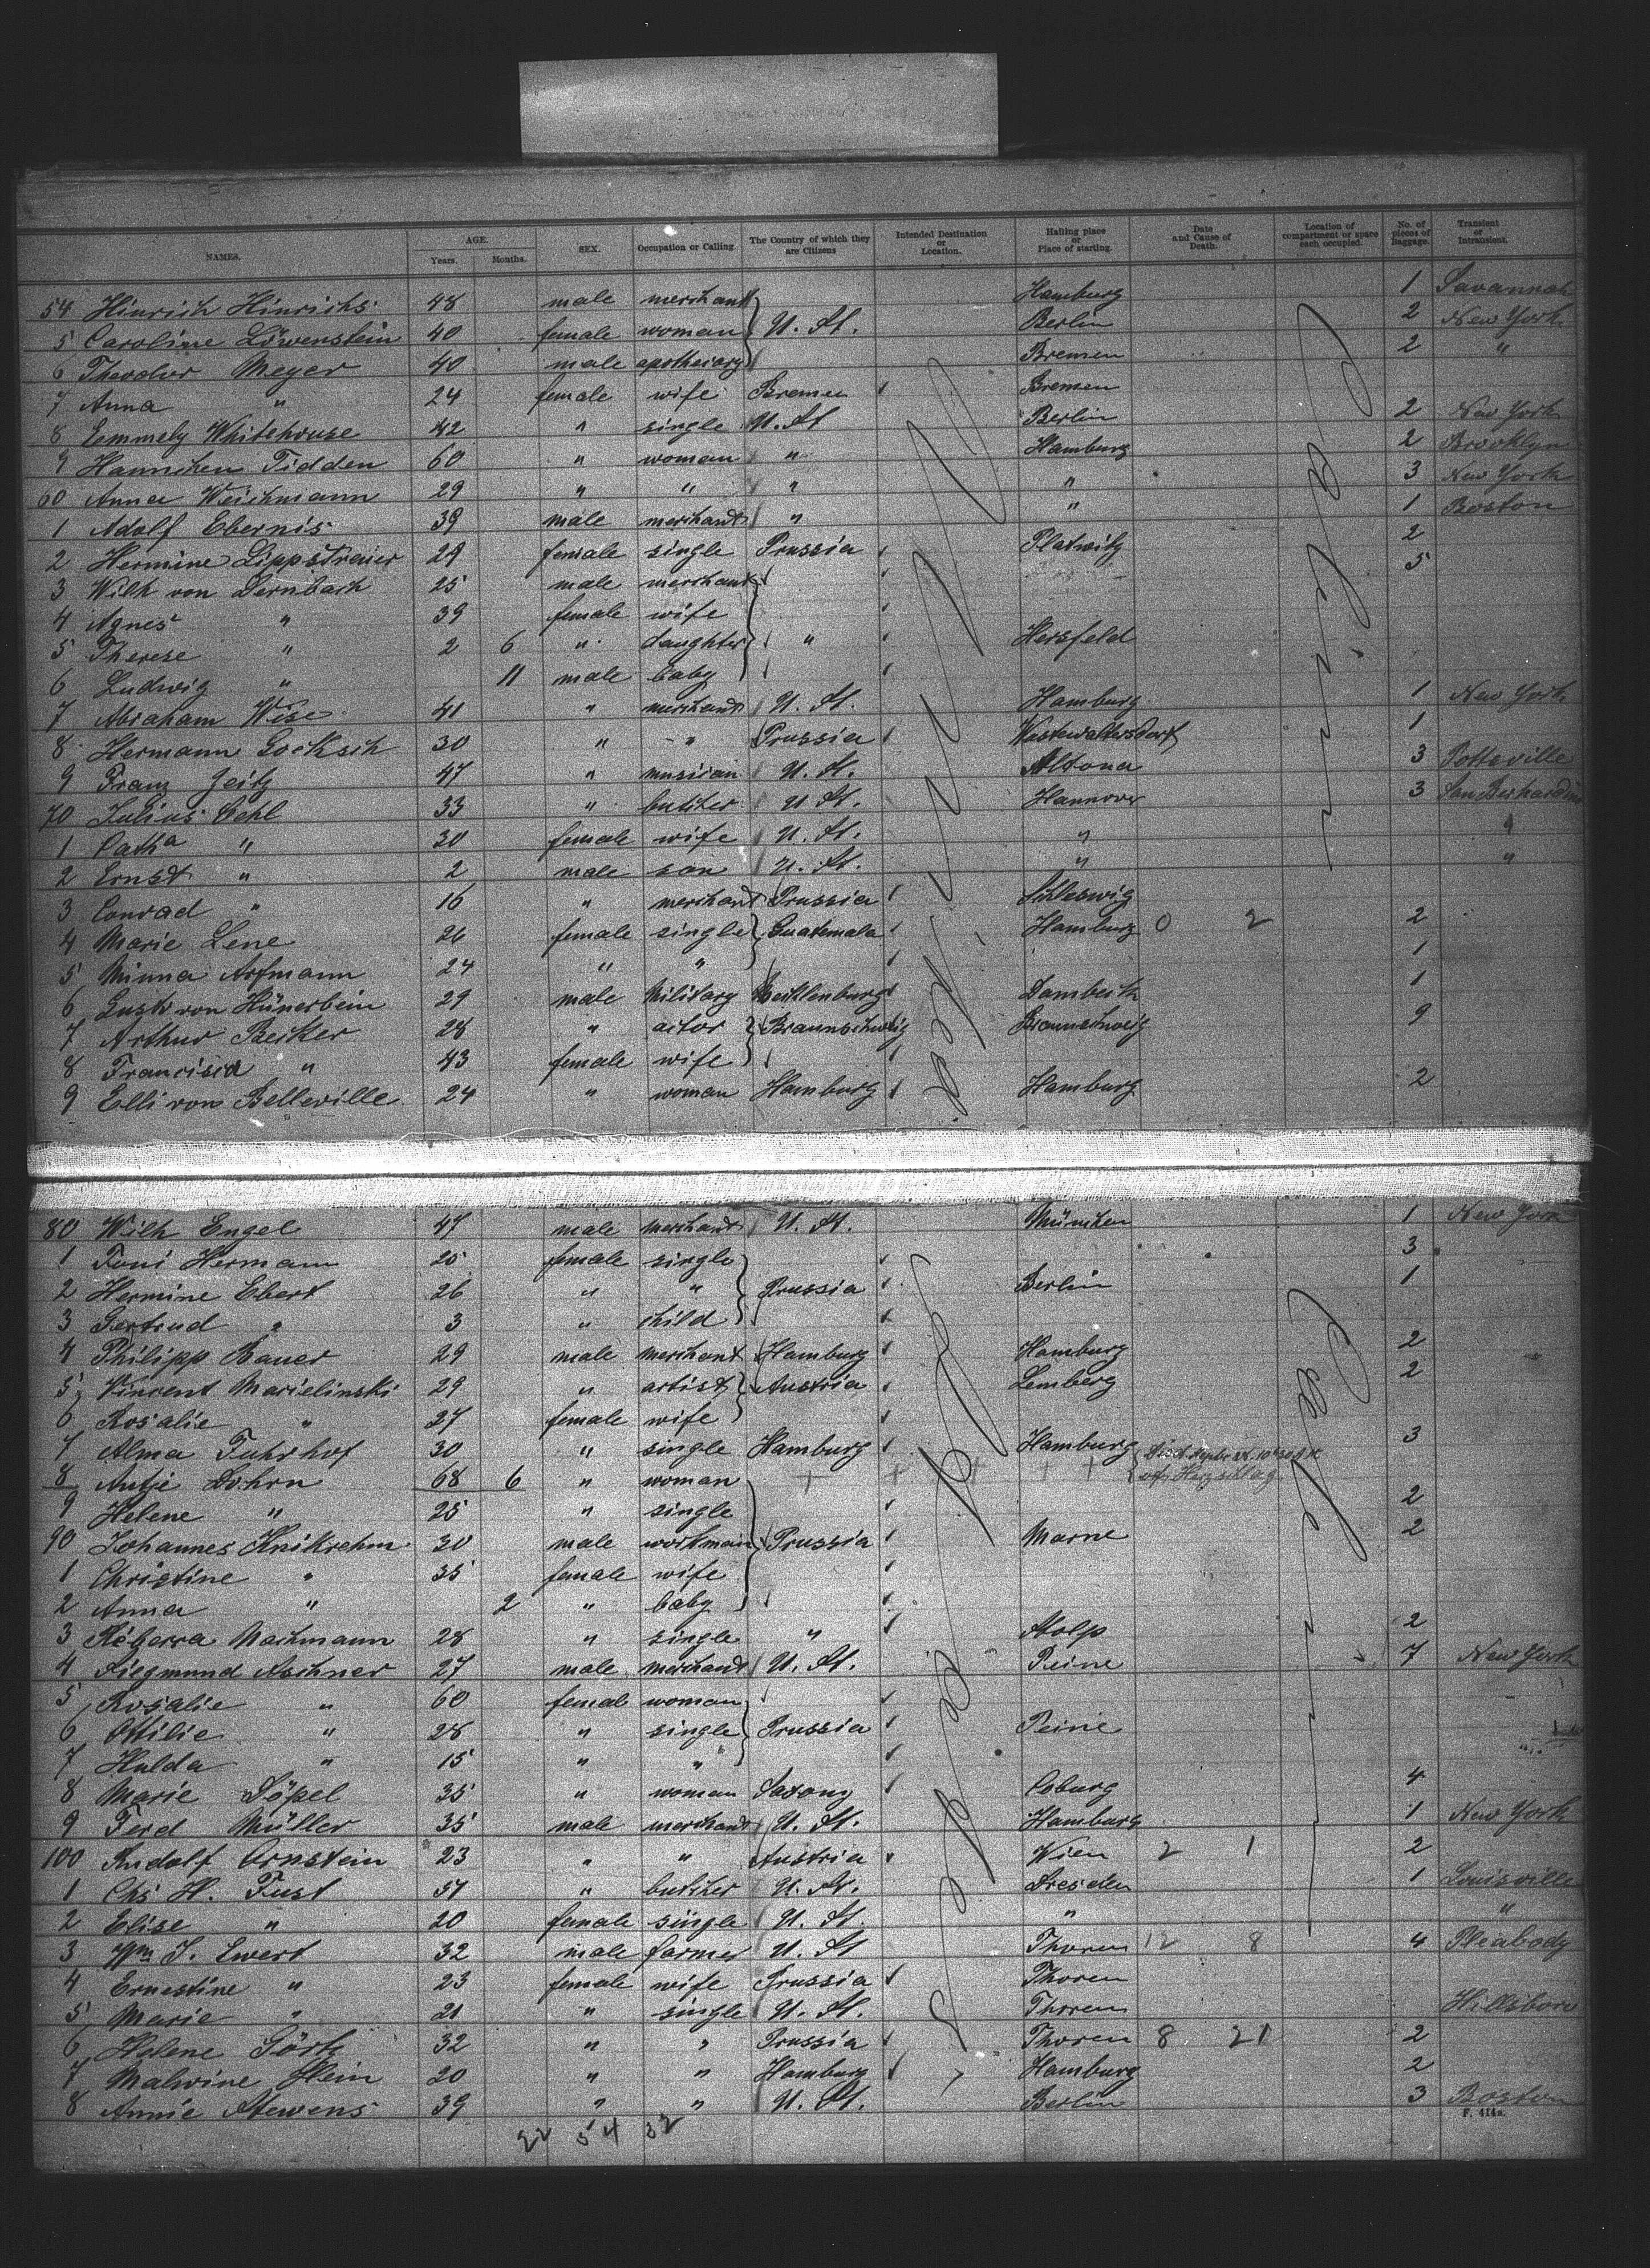 NAMES. AGE. Years. Months. SEX. Occupation or Calling. The Country of which they are Citizens Intended Destination or Location. Hailing place or Place of starting. Date and Cause of Death. Location of compartment or space each occupied. No. of pieces of Baggage. Transient or Intransient.
54 Hinrich Hinrichs 48 male merchant Hamburg 1 Savannah
5 Caroline Löwenstein 40 female woman U. St. Berlin 2 New York
6 Theodor Meyer 40 male apothecary Bremen 2 "
7 Anna " 24 female wife Bremen Bremen
8 Emmely Whitehouse 42 " single U. St Berlin 2 New York
9 Hannchen Tidden 60 " woman " Hamburg 2 Brooklyn
60 Anna Weichmann 29 " " " " 3 New York
1 Adolf Ebernis 39 male merchant " " 1 Boston
2 Hermine Lippstreuer 29 female single Prussia 2
3 Wilh von Dernbach 25 male merchant 5
4 Agnes " 39 female wife
5 Therese " 2 6 " daughter " Hersfeld
6 Ludwig " 11 male baby
7 Abraham Wise 41 " merchant U. St. Hamburg 1 New York
8 Hermann 30 " " Prussia Wüstewaltersdorf 1
9 Franz Zeitz 47 " musician U. St. Altona 3 Pottsville
70 Julius Oehl 33 " butcher U. St. Hannover 3 San Bernardino
1 Catha " 30 female wife U. St. " "
2 Ernst " 2 male son U. St. " "
3 Conrad " 16 " merchant Prussia Schleswig
4 Marie Lene 26 female single Guatemala Hamburg 0 2 2
5 Minna Arfmann 24 " " 1
6 Gust. von Hünerbein 29 male Military Mecklenburg Dambeck 1
7 Arthur Becker 28 " actor Braunschweig Braunschweig 9
8 Francisca " 43 female wife
9 Elli von Belleville 24 " woman Hamburg Hamburg 2
80 Wilh Engel 47 male merchant U. St. München 1 New York
1 Toni Hermann 25 female single 3
2 Hermine Ebert 26 " " Prussia Berlin 1
3 Gertrud " 3 " child
4 Philipp Bauer 29 male merchant Hamburg Hamburg 2
5 Vincent Marielinski 29 " artist Austria Lemberg 2
6 Rosalie " 27 female wife
7 Alma Fuhrhof 30 " single Hamburg Hamburg 3
8 Antje Dohrn 68 6 " woman + + + + + died Septbr
9 Helene " 25 " single 2
90 Johannes Knikrehm 30 male workman Prussia Marne 2
1 Christine " 35 female wife
2 Anna " 2 " baby
3 Rebecca Nachmann 28 " single " Stolp 2
4 Siegmund Aschner 27 male merchant U. St. Peine 7 New York
5 Rosalie " 60 female woman
6 Ottilie " 28 " single Prussia Peine
7 Hulda " 15 " "
8 Marie Göpel 35 " woman Saxony Coburg 4
9 Ferd Müller 35 male merchant U. St. Hamburg 1 New York
100 Rudolf Ornstein 23 " " Austria Wien 2 1 2
1 Chs H. Fust 51 " butcher U. St. Dresden 1 Louisville
2 Elise " 20 female single U. St. " "
3 Wm J. Ewert 32 male farmer U. St Thoren 12 8 4 Pleabody
4 Ernestine " 23 female wife Prussia Thoren
5 Marie " 21 " single U. St. Thoren Hillsboro
6 Helene Görtz 32 " " Prussia Thoren 8 21 2
7 Malwine Hein 20 " " Hamburg Hamburg 2
8 Annie Stewens 39 " " U. St. Berlin 3 Boston
F. 414a.
22 54 32